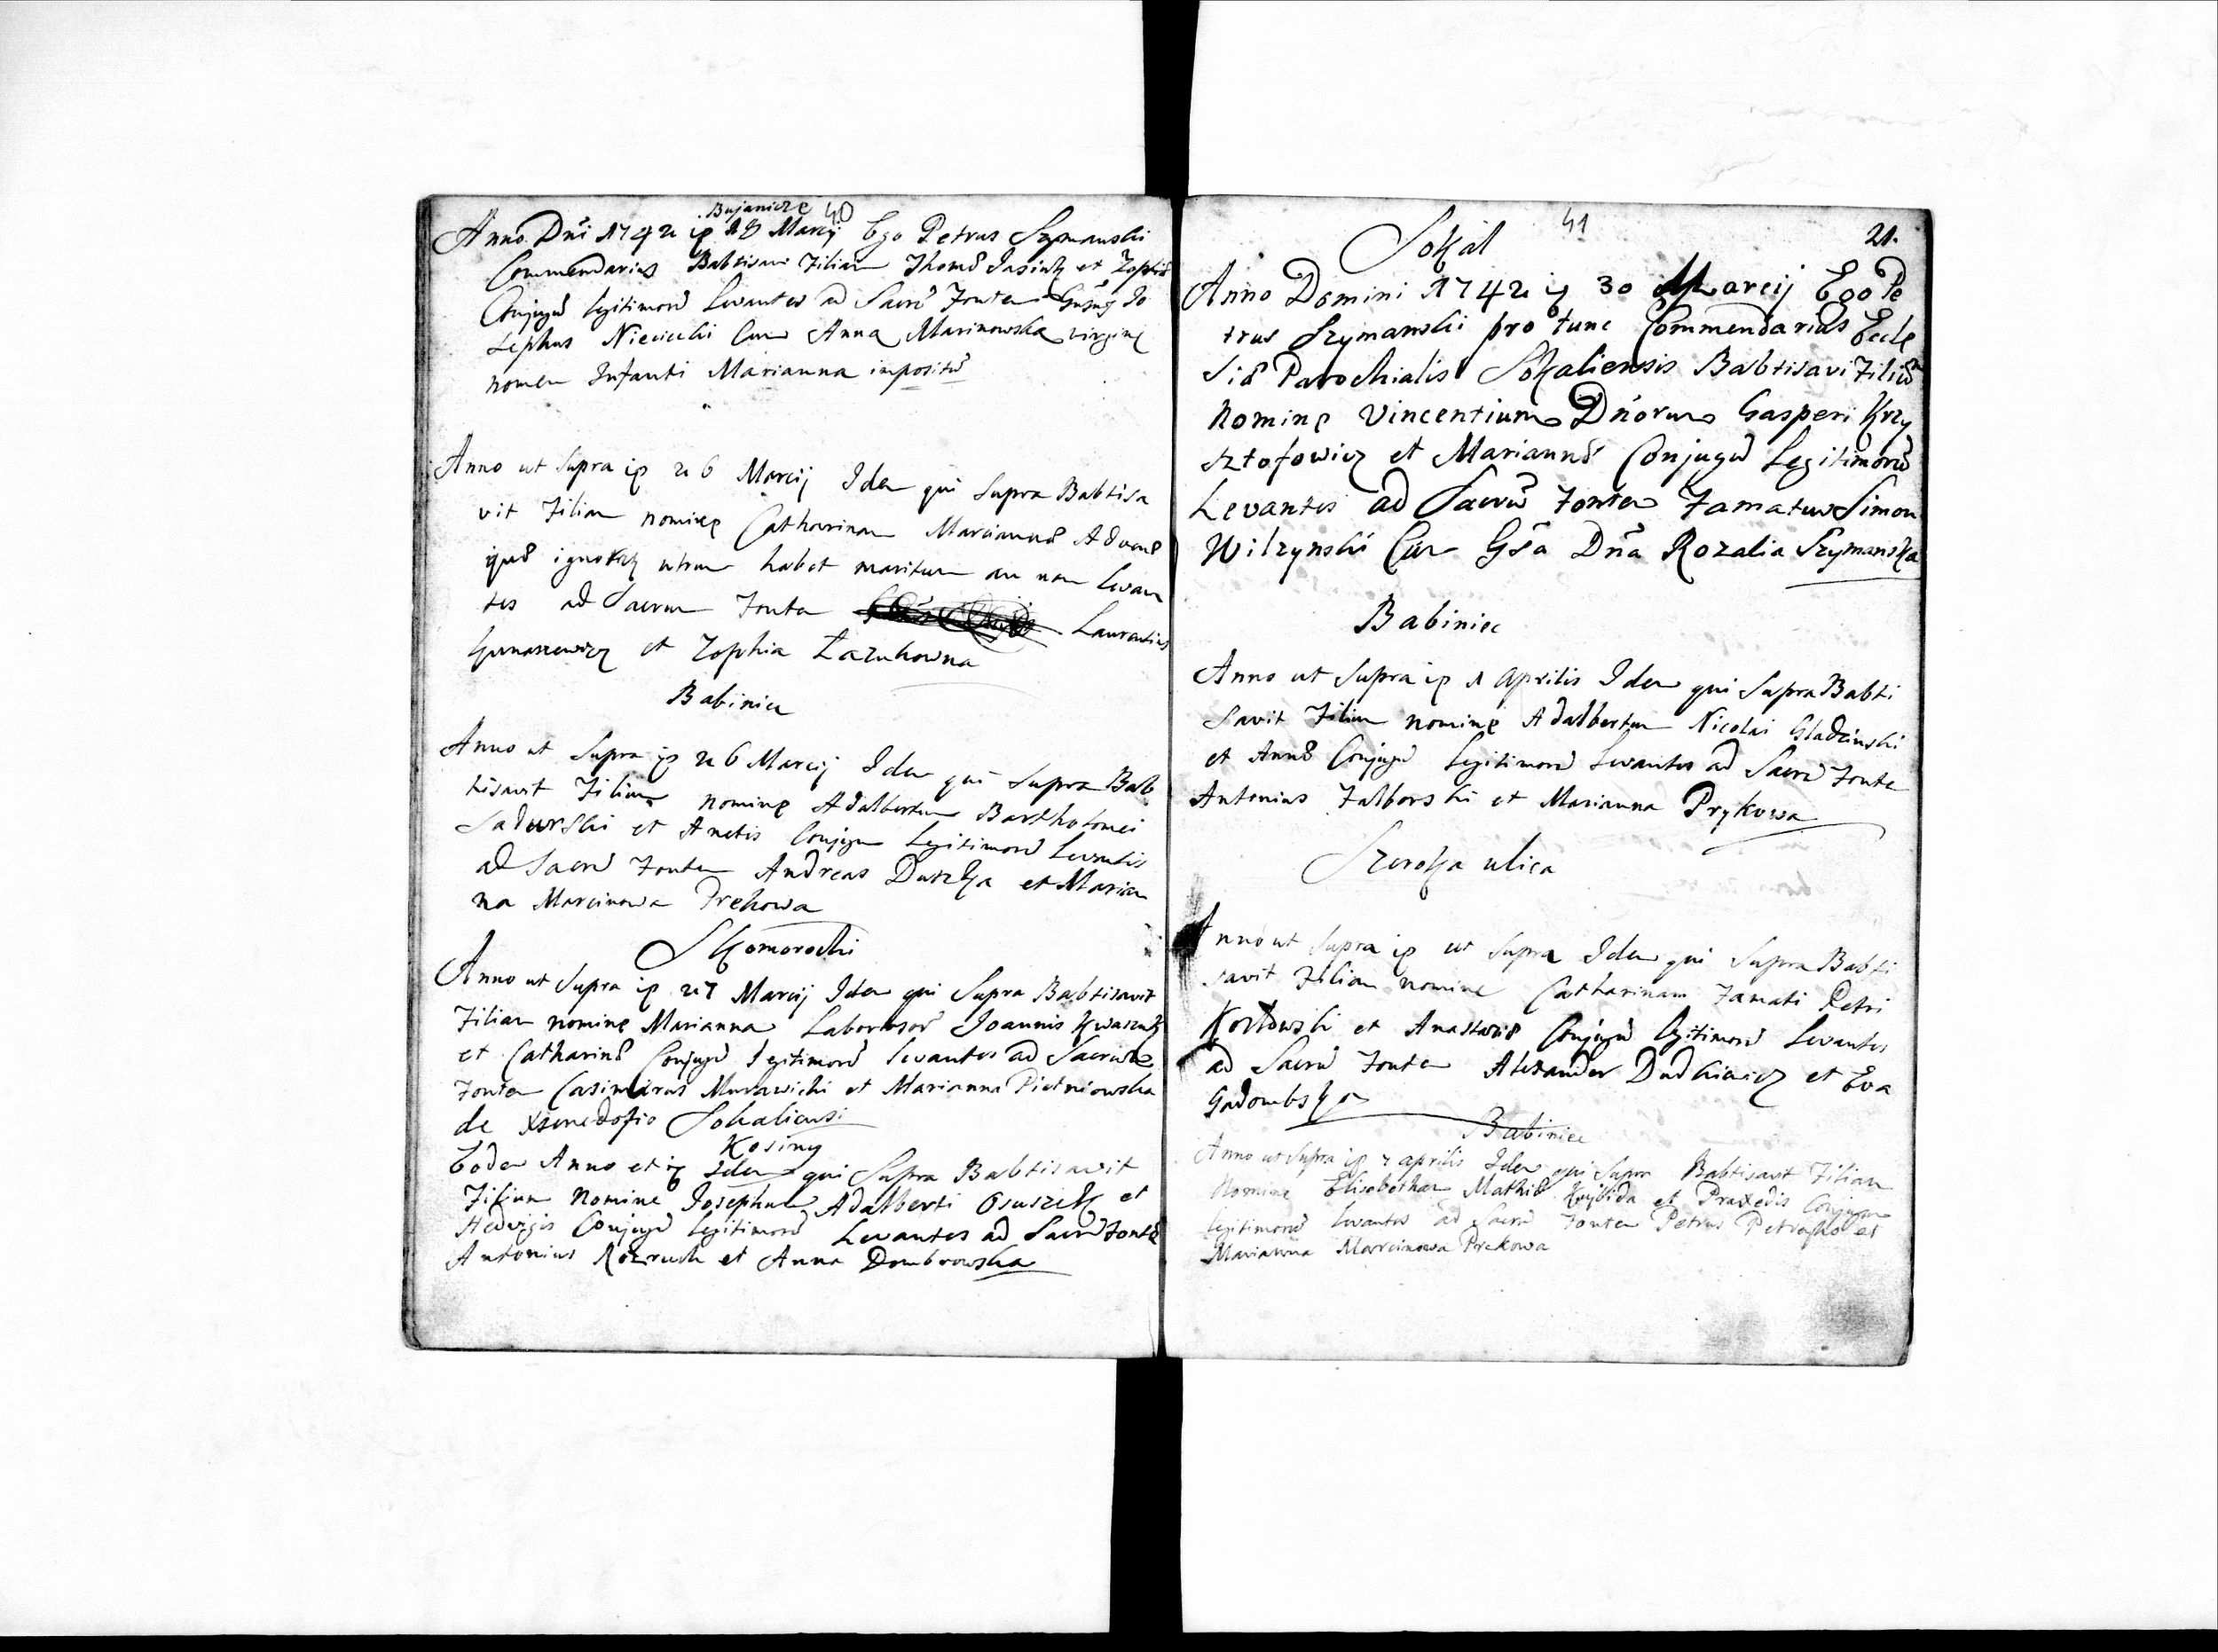 Bujanicze 40
Anno Dni 1742 ip 18 Marcij Ego Petrus Szymanski
Commendarius Babtisavi Filiam Thomæ Jasiuk et Zophiæ
Conjugũ legitimorũ Levantes ad Sacrũ Fontem Gnsus Jo
sephus Nieciecki Cum Anna Marinowska virgine
nomen Infanti Marianna impositũ
Anno ut Supra ip 26 Marcij Idem qui Supra Babtisa
vit Filiam nomine Catharinam Mariannæ Advenæ
quæ utrum habet maritum an non Levan
tes ad Sacrum Fontem Laurentius
et Zophia Łazukowna
Babiniec
Anno ut Supra ip 26 Marcij Idem qui Supra Bab
tisavit Filium nomine Adalbertum Bartholomei
Sadurski et Anetis Conjugum Legitimorũ Levantis
ad Sacrũ Fontem Andreas Duszka et Marian
na Marcinowa Prekowa
Skomorochi
Anno ut Supra ip 27 Marcij Idem qui Supra Babtisavit
Filiam nomine Marianna Laboriosorũ Joannis Kwaszuk
et Catharinæ Conjugũ legitimorũ levantes ad Sacrum
Fontem Casimirus Murawicki et Marianna Pietniowska
de Sokaliensi
Kosiny
Eodem Anno et ip Idem qui Supra Babtisavit
Filium Nomine Josephum Adalberti Osuszek et
Hedvigis Conjugũ legitimorũ Levantes ad Sacrũ Fontẽ
Antonius Rozruch et Anna Dombrowska
Sokal 41 21.
Anno Domini 1742 ip 30 Marcij Ego Pe
trus Szymanski pro tunc Commendarius Eccle
siæ Parochialis Sokaliensis Babtisavi Filiũ
Nomine Vincentium Dnorum Gasperi Krzy
sztofowicz et Mariannæ Conjugũ Legitimorũ
Levantes ad Sacrũ Fontem Famatus Simon
Wilzynski Cum Gsa Dna Rozalia Szymanska
Babiniec
Anno ut Supra ip 1 Aprilis Idem qui Supra Babti
savit Filium nomine Adalbertum Nicolai Gladzinski
et Annæ Conjugũ Legitimorũ Levantes ad Sacrũ Fontem
Antonius Falborski et Marianna Prykowa
Szeroka ulica
Anno ut Supra ip ut Supra Idem qui Supra Babti
savit Filiam nomine Catharinam Famati Petri
Kozłowski et Anastasiæ Conjugũ legitimorũ Levantes
ad Sacrũ Fontem Alexander Dudkiewicz et Eva
Gadombska
Babiniec
Anno ut Supra ip 7 aprilis Idem qui Supra Babtisavit Filiam
Nomine Elisabetham Mathiæ et Praxedis Conjugum
legitimorũ levantes ad Sacrũ Fontem Petrus Petrasko et
Marianna Marcinowa Prekowa